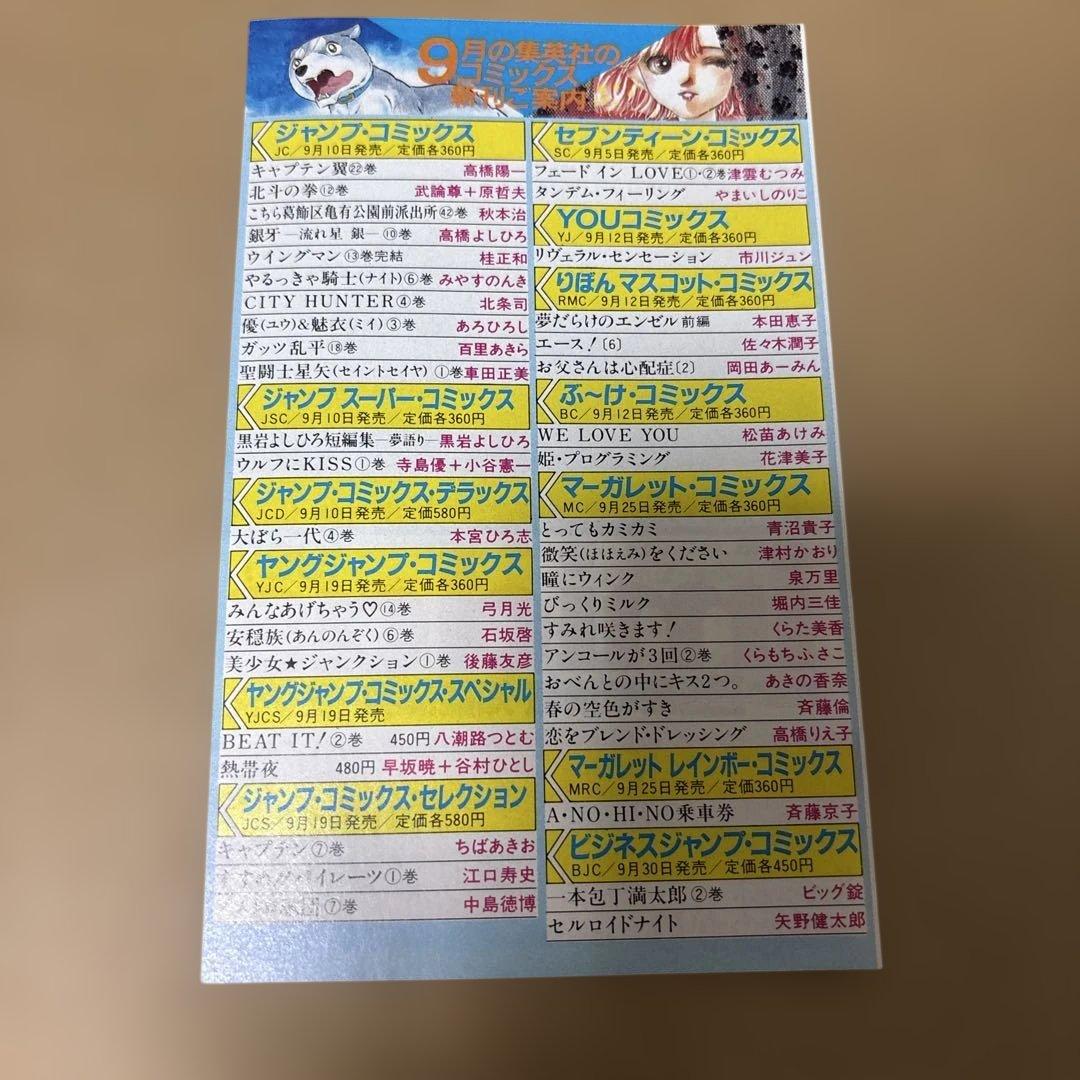 9月の集英社の
コミックス
新刊ご案内
ジャンプ・コミックス
JC／9月10日発売／定価各360円
キャプテン翼㉒巻 高橋陽一
北斗の拳⑫巻 武論尊＋原哲夫
こちら葛飾区亀有公園前派出所㊷巻 秋本治
銀牙―流れ星 銀―⑩巻 高橋よしひろ
ウイングマン⑬巻完結 桂正和
やるっきゃ騎士(ナイト)⑥巻 みやすのんき
CITY HUNTER④巻 北条司
優(ユウ)&魅衣(ミイ)③巻 あろひろし
ガッツ乱平⑱巻 百里あきら
聖闘士星矢(セイントセイヤ)①巻 車田正美
ジャンプ スーパー・コミックス
JSC／9月10日発売／定価各360円
黒岩よしひろ短編集―夢語り― 黒岩よしひろ
ウルフにKISS①巻 寺島優＋小谷憲一
ジャンプ・コミックス・デラックス
JCD／9月10日発売／定価580円
大ぼら一代④巻 本宮ひろ志
ヤングジャンプ・コミックス
YJC／9月19日発売／定価各360円
みんなあげちゃう♡⑭巻 弓月光
安穏族(あんのんぞく)⑥巻 石坂啓
美少女★ジャンクション①巻 後藤友彦
ヤングジャンプ・コミックス・スペシャル
YJCS／9月19日発売
BEAT IT!②巻 450円 八潮路つとむ
熱帯夜 480円 早坂暁＋谷村ひとし
ジャンプ・コミックス・セレクション
JCS／9月19日発売／定価各580円
キャプテン⑦巻 ちばあきお
すすめ!!パイレーツ①巻 江口寿史
⑦巻 中島徳博
セブンティーン・コミックス
SC／9月5日発売／定価各360円
フェード イン LOVE①・②巻 津雲むつみ
タンデム・フィーリング やまいしのりこ
YOUコミックス
YJ／9月12日発売／定価各360円
リヴェラル・センセーション 市川ジュン
りぼん マスコット・コミックス
RMC／9月12日発売／定価各360円
夢だらけのエンゼル 前編 本田恵子
エース!〔6〕 佐々木潤子
お父さんは心配症〔2〕 岡田あーみん
ぶ〜け・コミックス
BC／9月12日発売／定価各360円
WE LOVE YOU 松苗あけみ
姫・プログラミング 花津美子
マーガレット・コミックス
MC／9月25日発売／定価各360円
とってもカミカミ 青沼貴子
微笑(ほほえみ)をください 津村かおり
瞳にウィンク 泉万里
びっくりミルク 堀内三佳
すみれ咲きます! くらた美香
アンコールが3回②巻 くらもちふさこ
おべんとの中にキス2つ。 あきの香奈
春の空色がすき 斉藤倫
恋をブレンド・ドレッシング 高橋りえ子
マーガレット レインボー・コミックス
MRC／9月25日発売／定価360円
A・NO・HI・NO乗車券 斉藤京子
ビジネスジャンプ・コミックス
BJC／9月30日発売／定価各450円
一本包丁満太郎②巻 ビッグ錠
セルロイドナイト 矢野健太郎